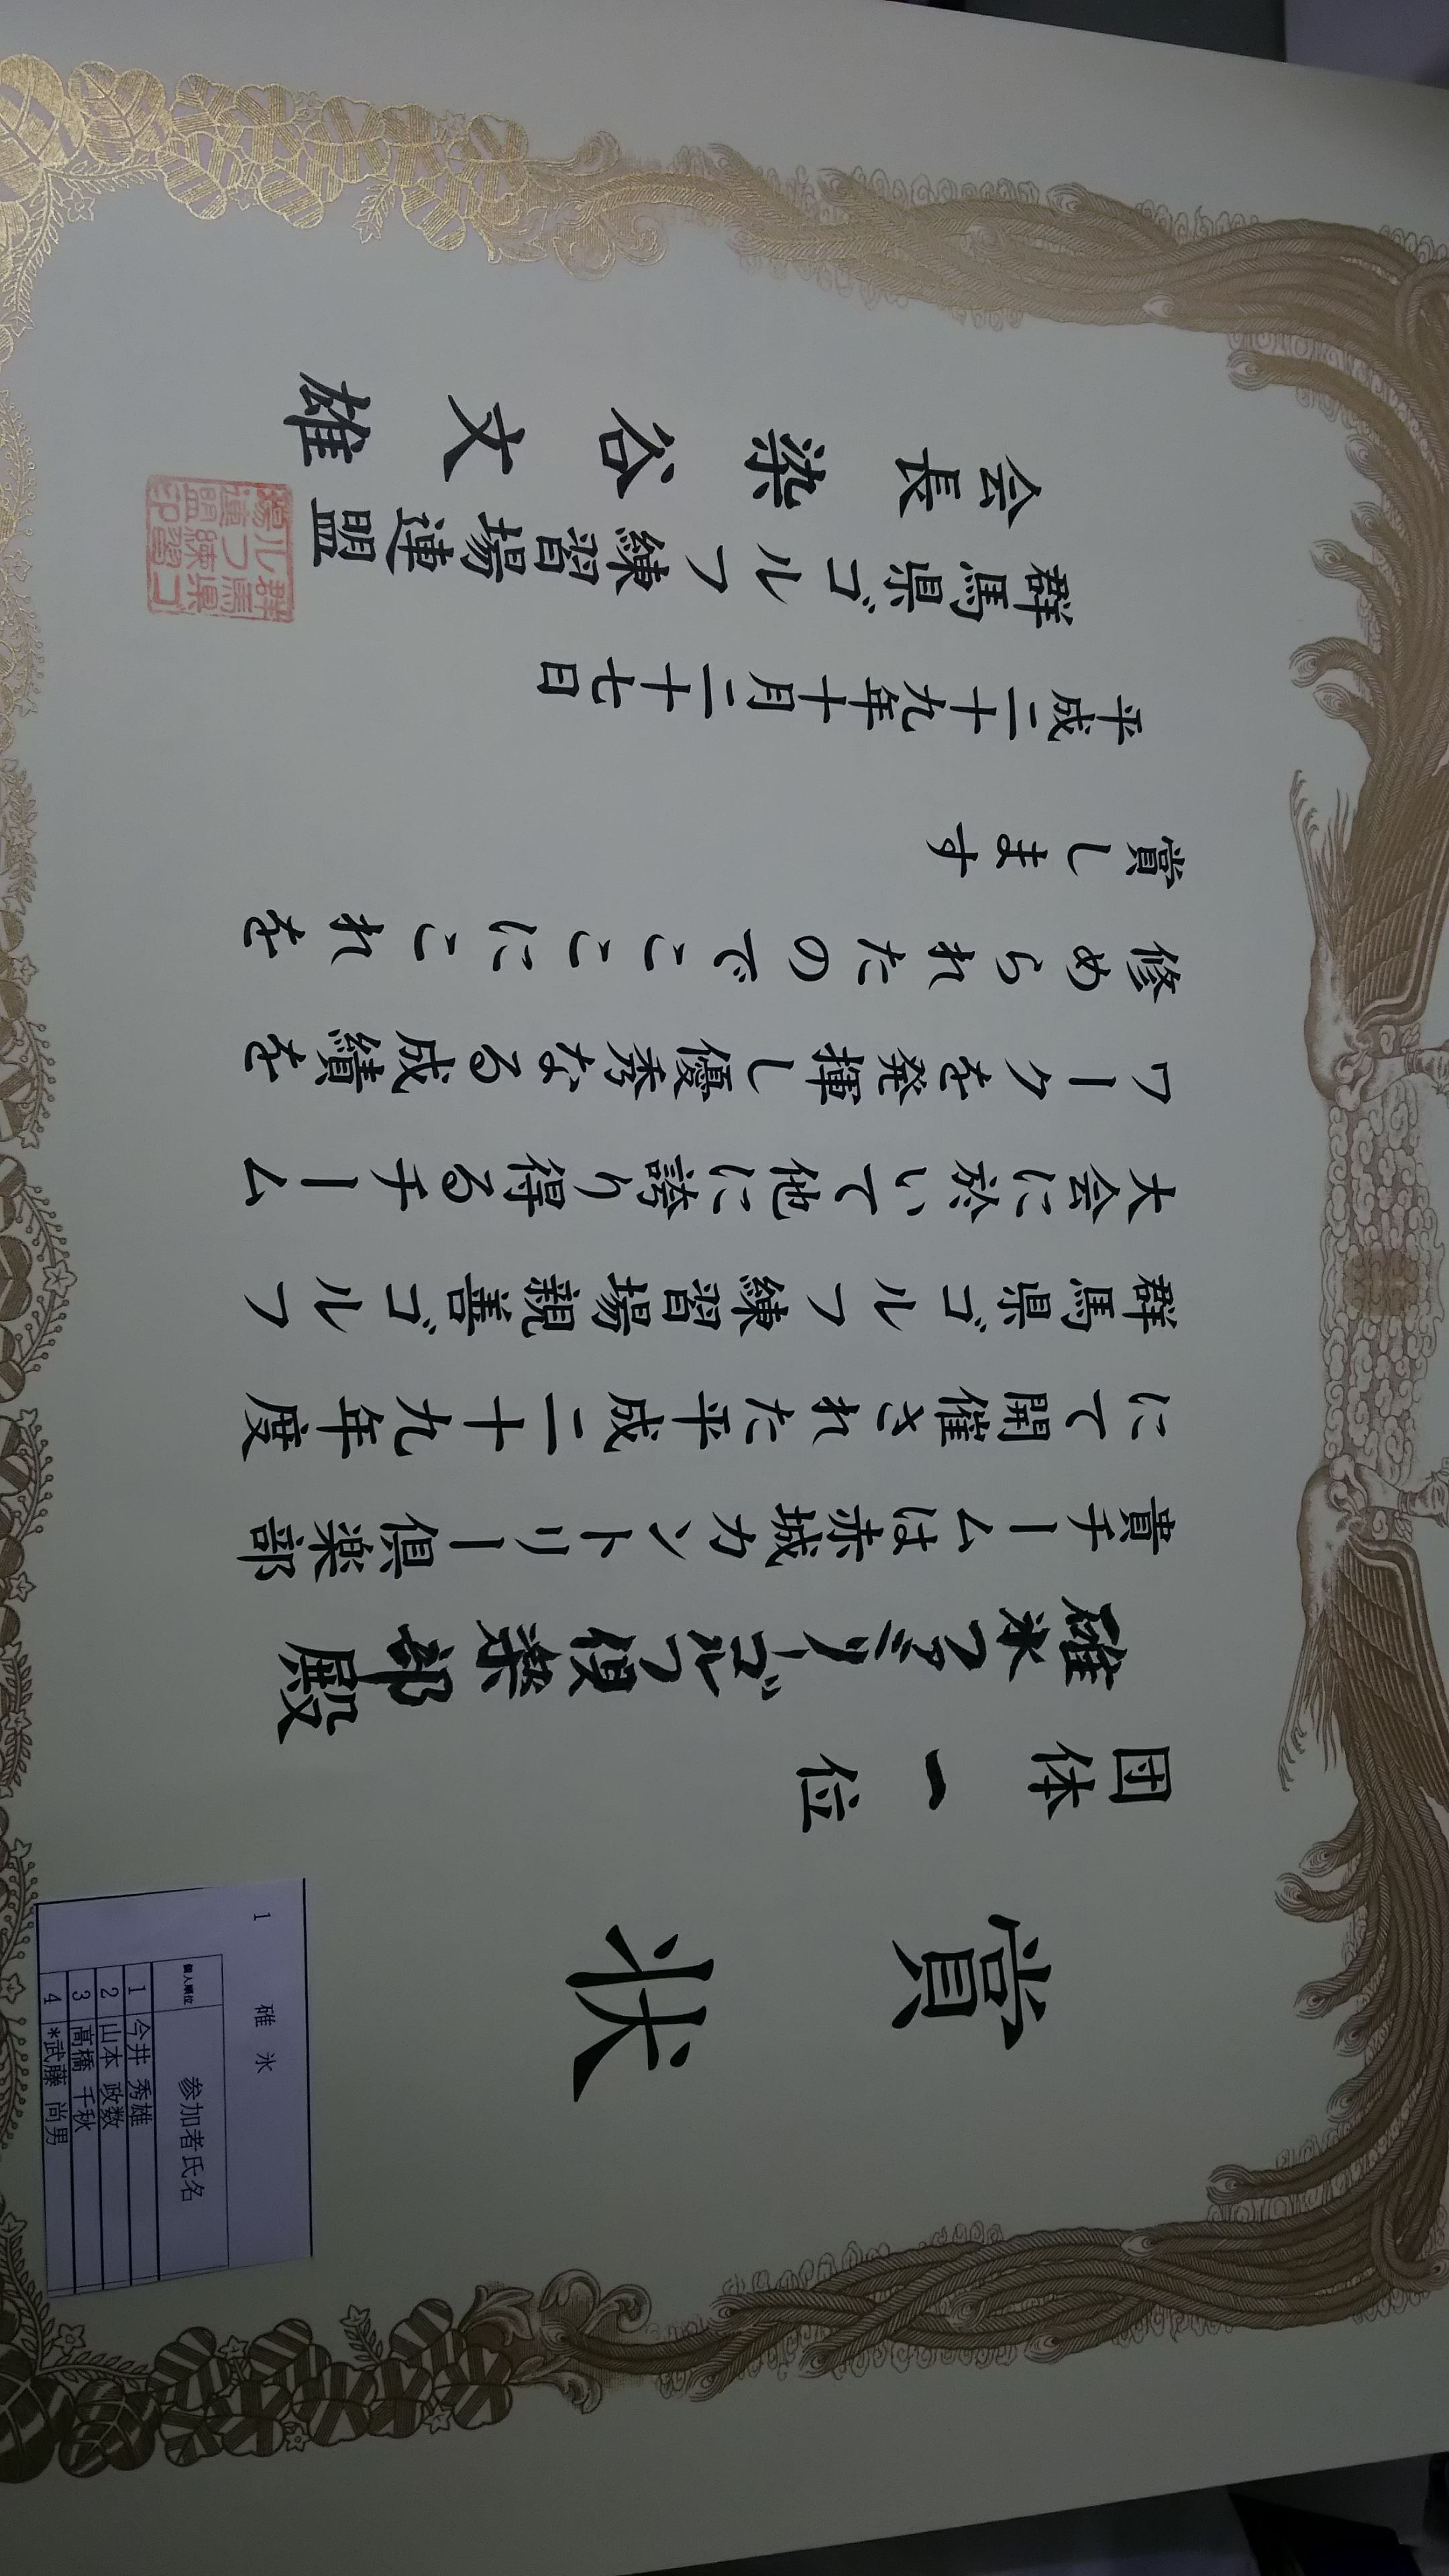 賞状
団体一位
碓氷ファミリーゴルフ倶楽部 殿
貴チームは赤城カントリー倶楽部
にて開催された平成二十九年度
群馬県ゴルフ練習場親善ゴルフ
大会に於いて他に誇り得るチーム
ワークを発揮し優秀なる成績を
修められたのでここにこれを
賞します
平成二十九年十月二十七日
群馬県ゴルフ練習場連盟
会長 染谷文雄
群馬県ゴ
ルフ練習
場連盟印
1 碓 氷
個人順位 参加者氏名
1 今井 秀雄
2 山本 政数
3 高橋 千秋
4 *武藤 尚男